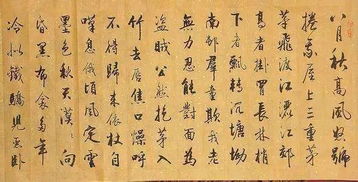 八月秋高風怒號
捲我屋上三重茅
茅飛渡江灑江郊
高者掛罥長林梢
下者飄轉沉塘坳
南邨群童欺我老
無力忍能對面為
盜賊公然抱茅入
竹去唇焦口燥呼
不得歸來依杖自
嘆息俄頃風定雲
墨色秋天漠漠向
昏黑布衾多年
冷似鐵驕兒惡臥